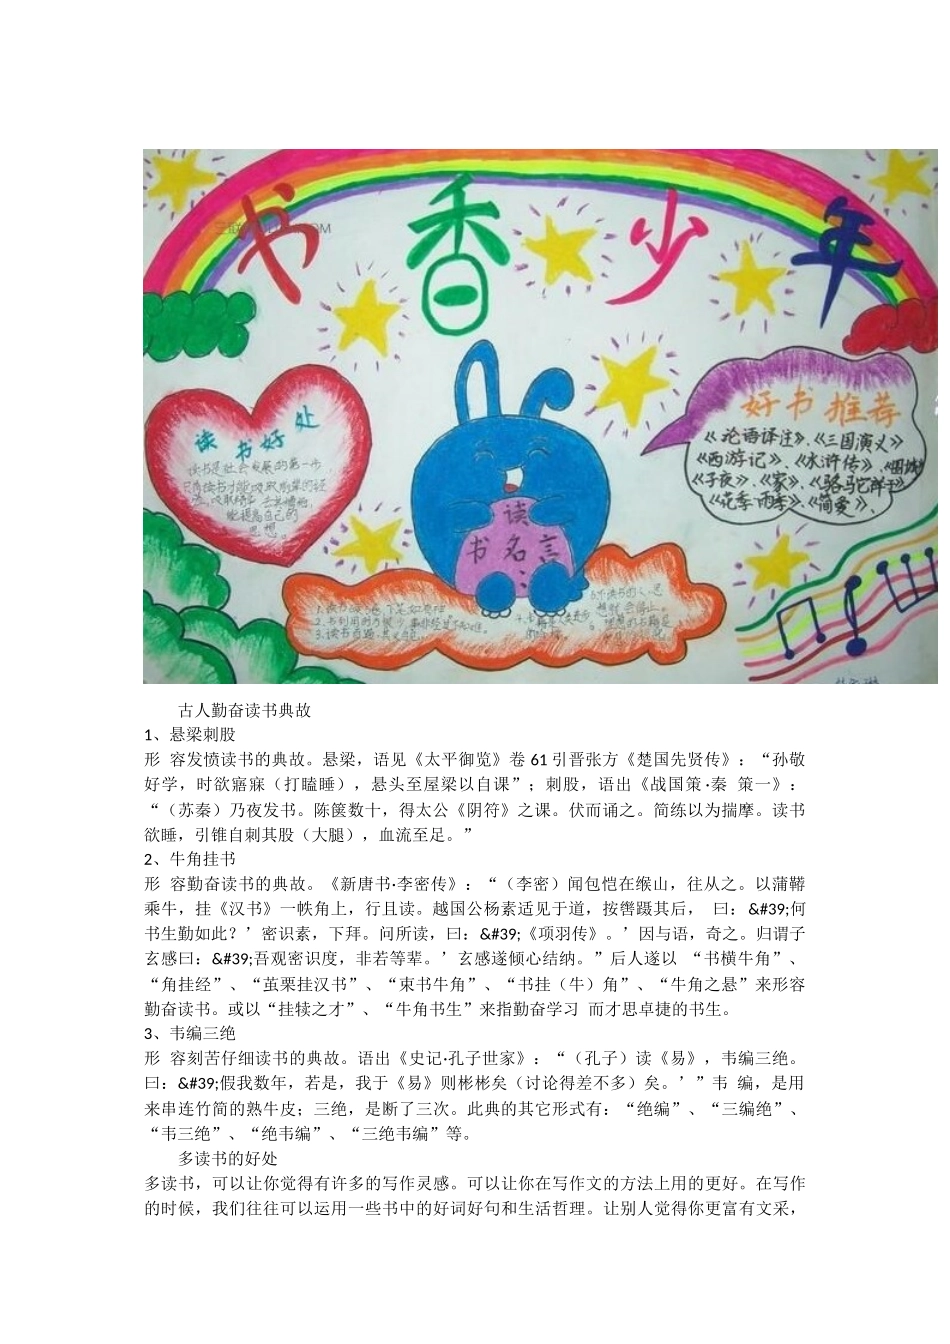 书香少年
读书好处
读书是社会发展的第一步,
好书推荐
《论语译注》、《三国演义》
《西游记》、《水浒传》、《围城》
《子夜》、《家》、《骆驼祥子》
《花季雨季》、《简爱》、
读
书名言
:
古人勤奋读书典故
1、悬梁刺股
形 容发愤读书的典故。悬梁，语见《太平御览》卷 61 引晋张方《楚国先贤传》：“孙敬
好学，时欲寤寐（打瞌睡），悬头至屋梁以自课”；刺股，语出《战国策·秦 策一》：
“（苏秦）乃夜发书。陈箧数十，得太公《阴符》之课。伏而诵之。简练以为揣摩。读书
欲睡，引锥自刺其股（大腿），血流至足。”
2、牛角挂书
形 容勤奋读书的典故。《新唐书·李密传》：“（李密）闻包恺在缑山，往从之。以蒲鞯
乘牛，挂《汉书》一帙角上，行且读。越国公杨素适见于道，按辔蹑其后， 曰：&#39;何
书生勤如此？’密识素，下拜。问所读，曰：&#39;《项羽传》。’因与语，奇之。归谓子
玄感曰：&#39;吾观密识度，非若等辈。’玄感遂倾心结纳。”后人遂以 “书横牛角”、
“角挂经”、“茧栗挂汉书”、“束书牛角”、“书挂（牛）角”、“牛角之悬”来形容
勤奋读书。或以“挂犊之才”、“牛角书生”来指勤奋学习 而才思卓捷的书生。
3、韦编三绝
形 容刻苦仔细读书的典故。语出《史记·孔子世家》：“（孔子）读《易》，韦编三绝。
曰：&#39;假我数年，若是，我于《易》则彬彬矣（讨论得差不多）矣。’”韦 编，是用
来串连竹简的熟牛皮；三绝，是断了三次。此典的其它形式有：“绝编”、“三编绝”、
“韦三绝”、“绝韦编”、“三绝韦编”等。
多读书的好处
多读书，可以让你觉得有许多的写作灵感。可以让你在写作文的方法上用的更好。在写作
的时候，我们往往可以运用一些书中的好词好句和生活哲理。让别人觉得你更富有文采，